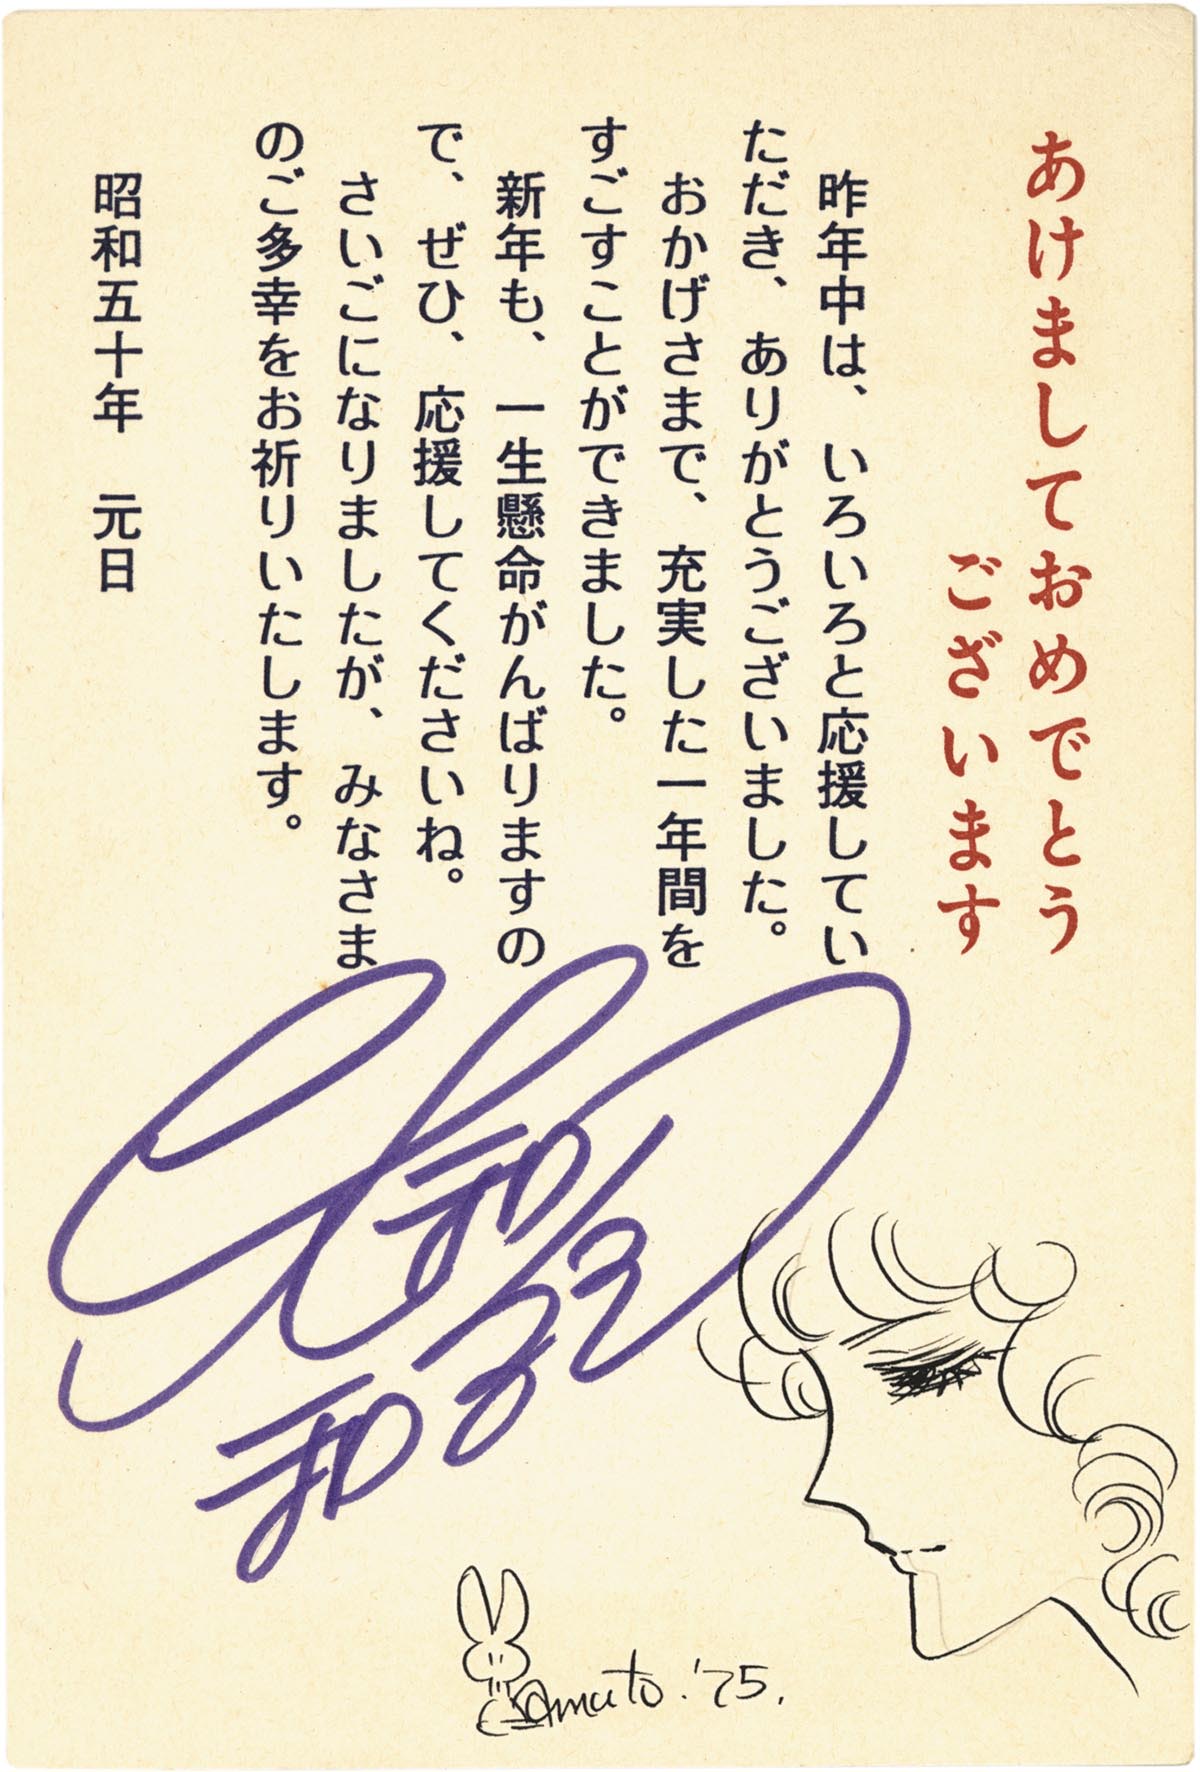 あけましておめでとう
ございます
昨年中は、いろいろと応援してい
ただき、ありがとうございました。
おかげさまで、充実した一年間を
すごすことができました。
新年も、一生懸命がんばりますの
で、ぜひ、応援してくださいね。
さいごになりましたが、みなさま
のご多幸をお祈りいたします。
昭和五十年　元日
Yamato.'75.